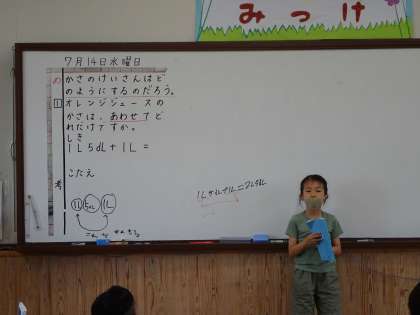 みっけ
7月14日水曜日
め かさのけいさんはど
のようにするのだろう。
1 オレンジジュースの
かさは、あわせてど
れだけですか。
しき
1L5dL+1L=
こたえ
考
1L 5dL 1L
1L5dL+1L=2L5dL